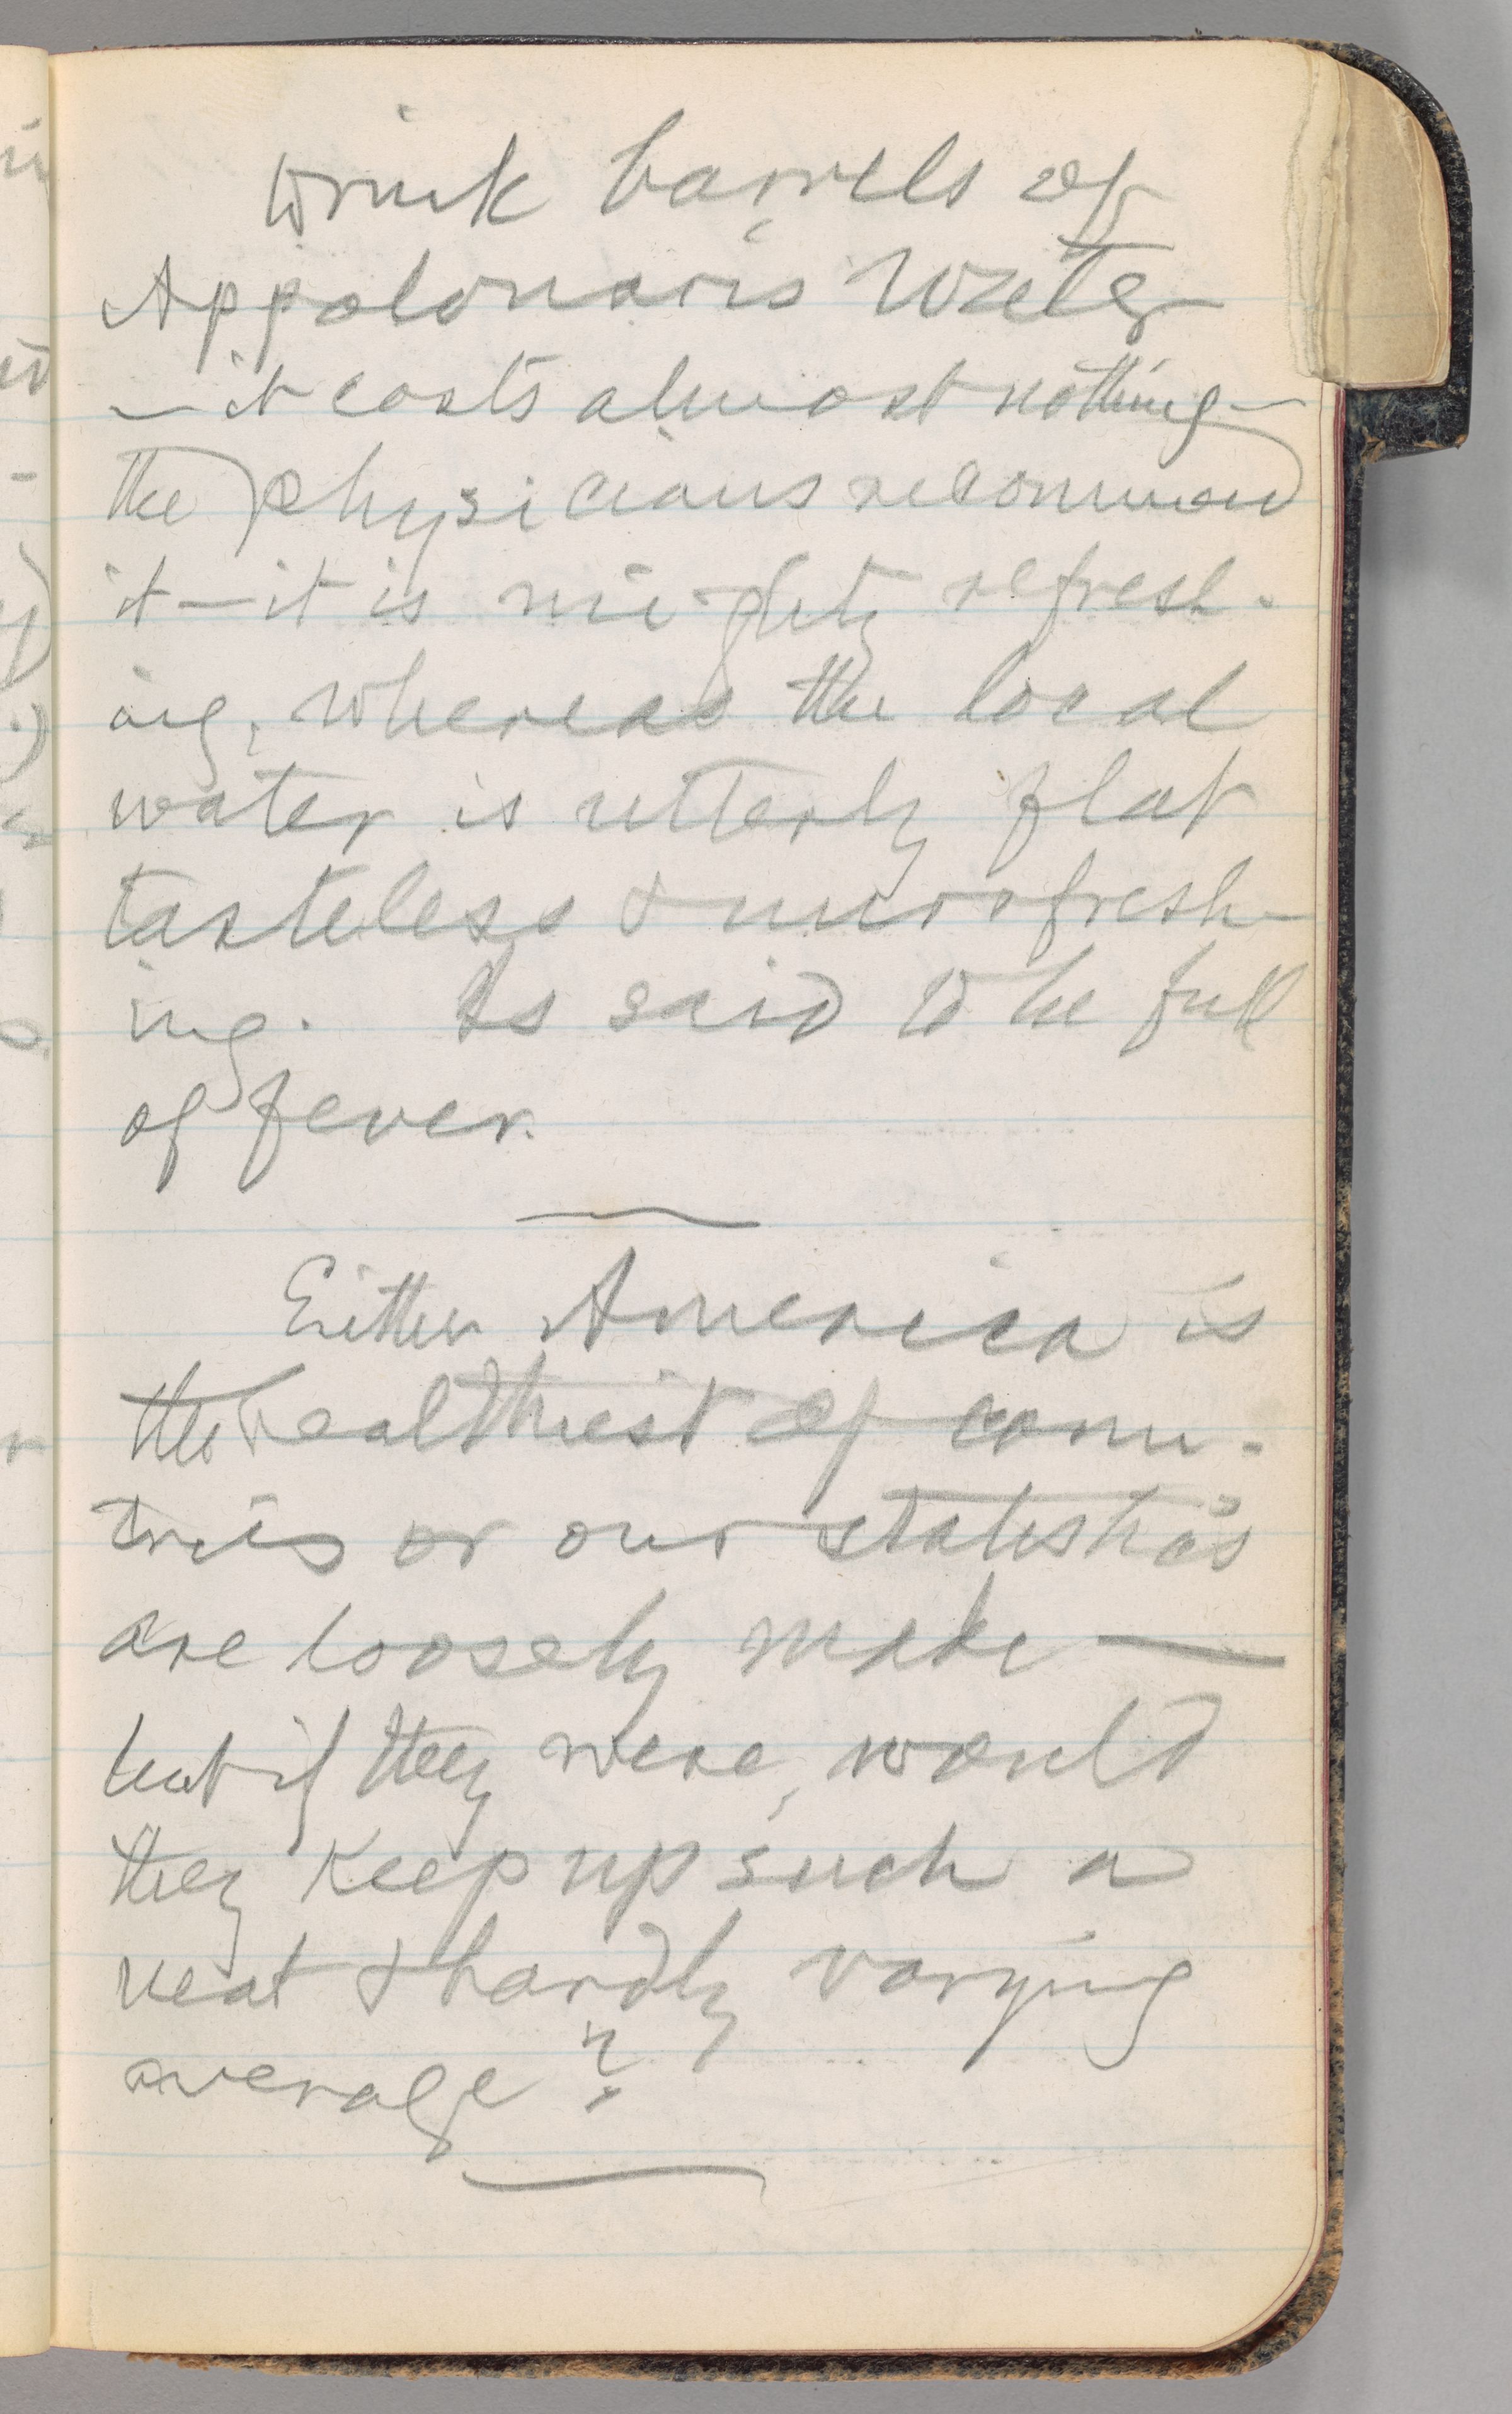 Drink barrels of
Appolonaris Water
— it costs almost nothing —
the physicians recommend
it — it is mighty refresh-
ing, whereas the local
water is utterly flat
tasteless & unrefresh-
ing. Is said to be full
of fever.
Either America is
the healthiest of coun-
tries or our statistics
are loosely made —
but if they were, would
they keep up such a
neat & hardly varying
average?